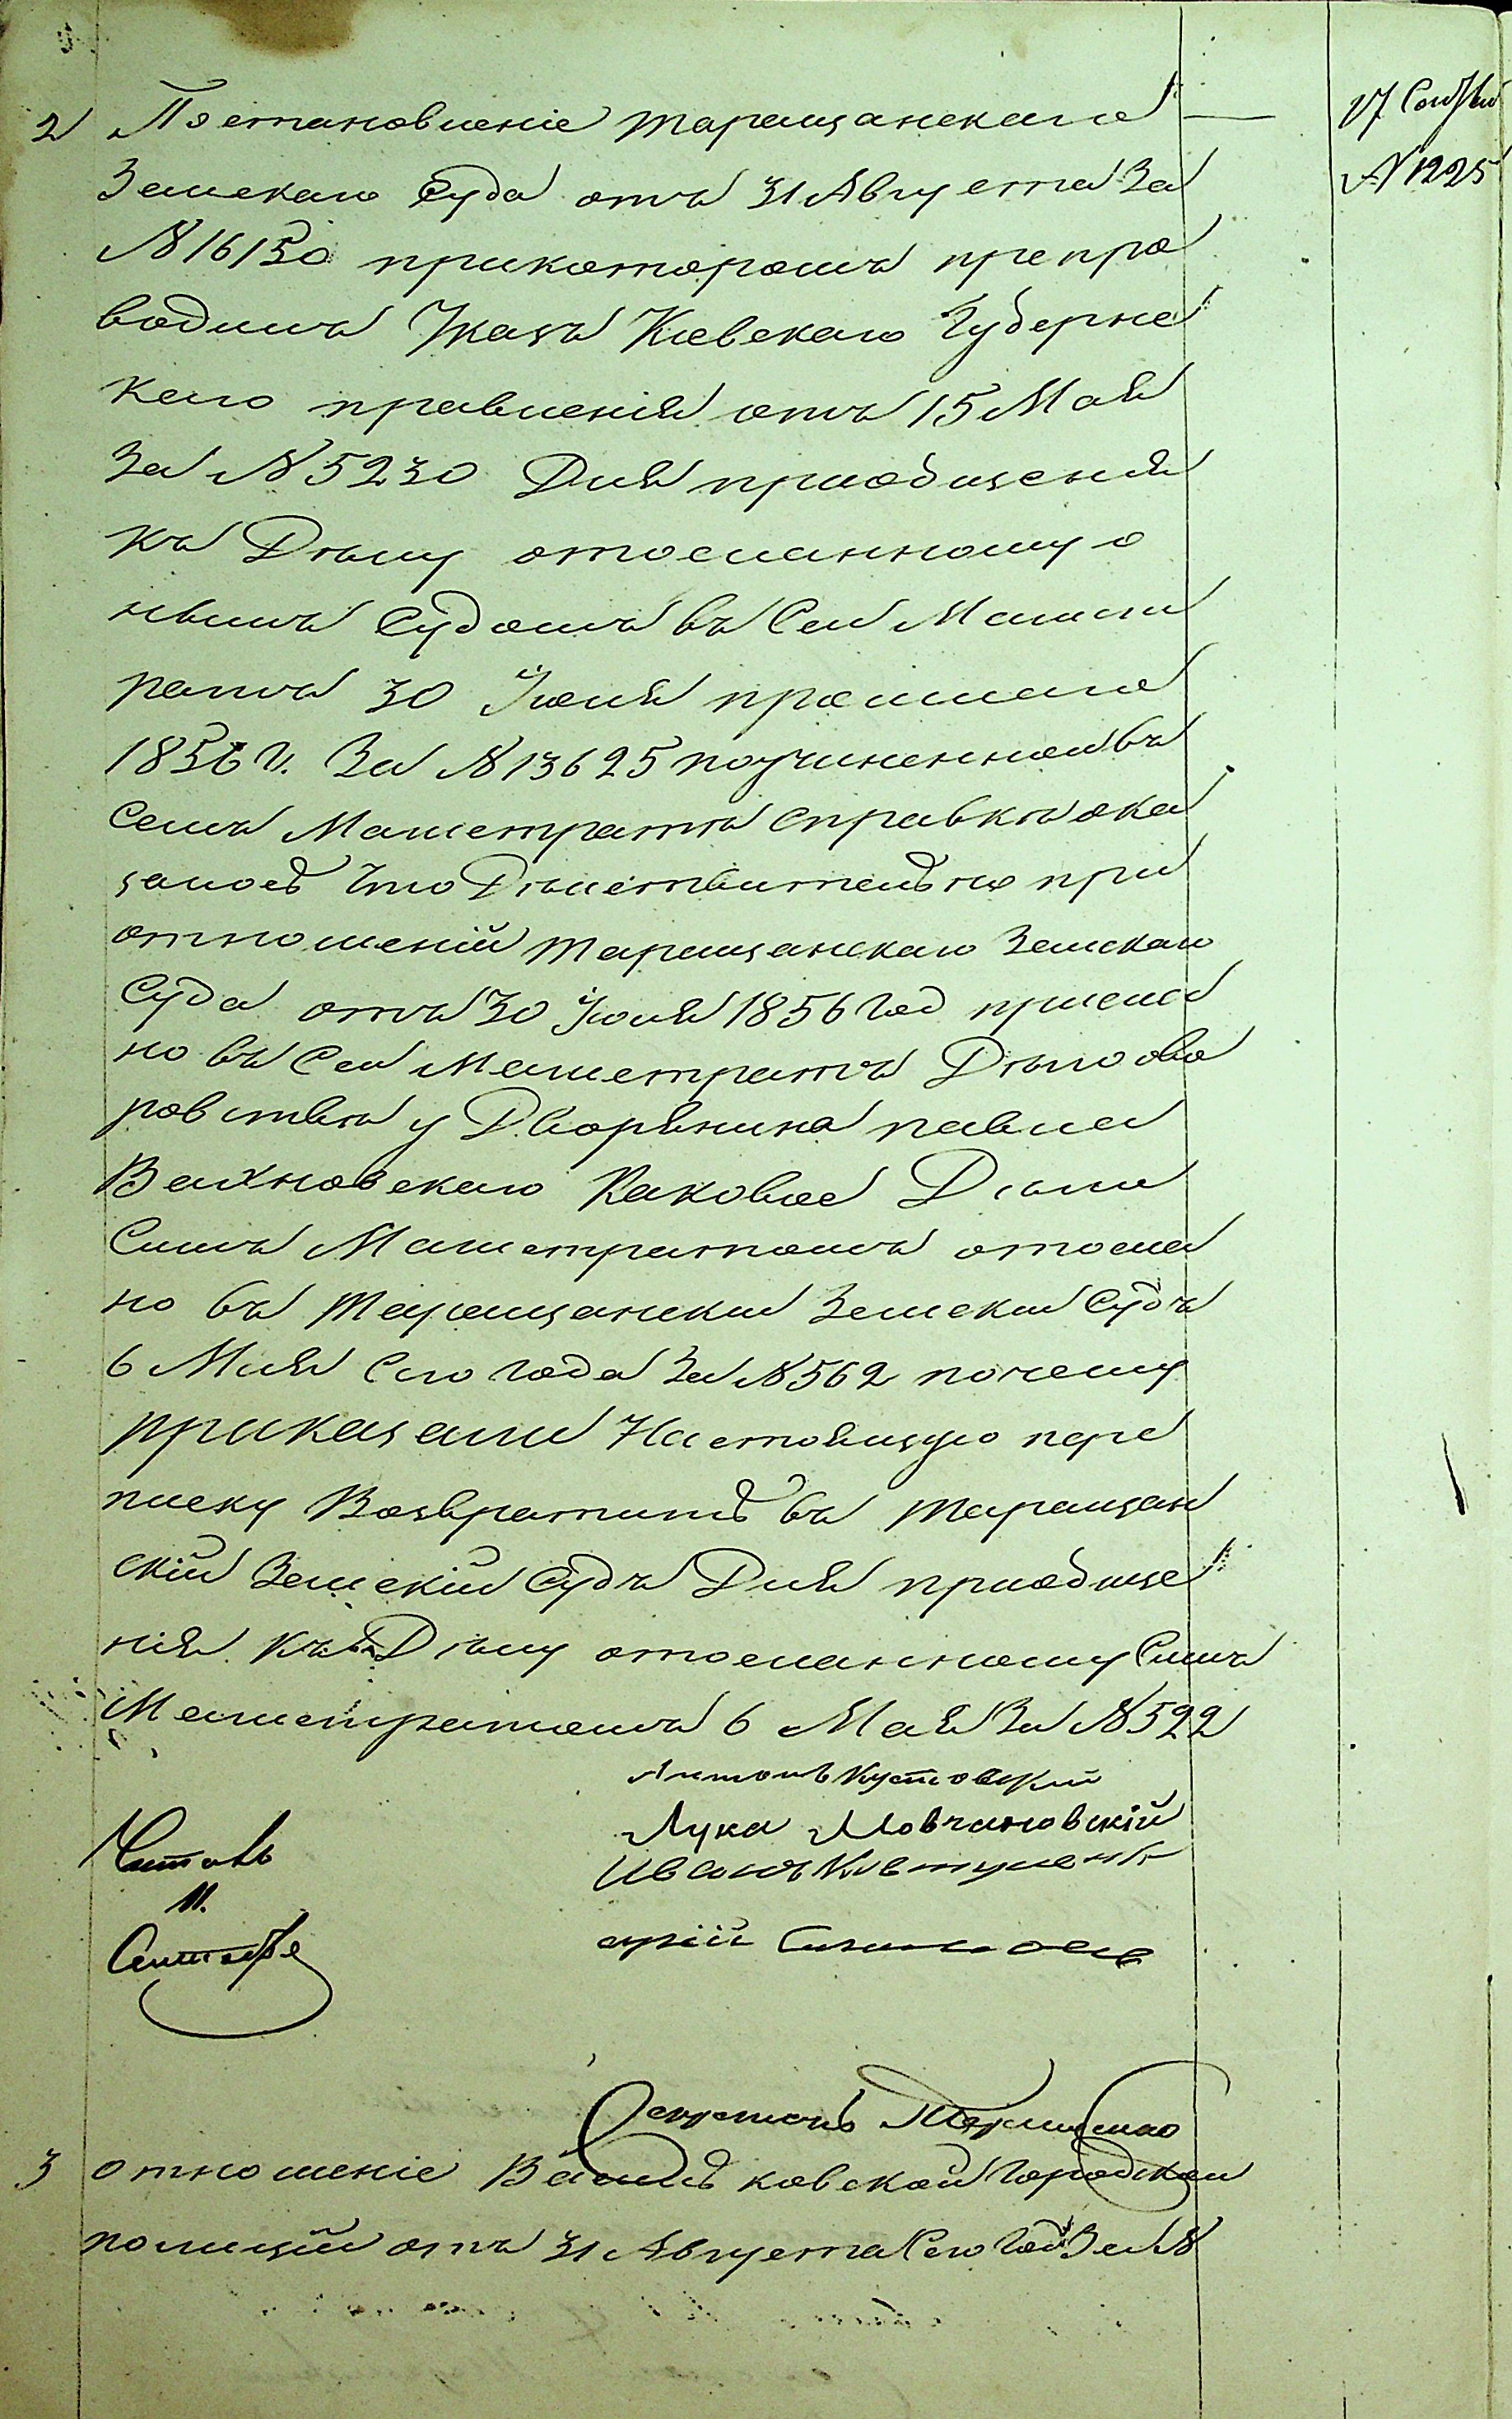 2 Постановленіе таращанскаго
17 Сентября
Земскаго Суда отъ 31 Августа За
№ 1225
№ 16150 прикоторомъ препро
водитъ Указъ Кіевскаго Губернс
каго правленія отъ 15 Мая
За № 5230 Для пріобщенія
къ Дѣлу отосланному о
нымъ Судомъ въ Сей Магист
ратъ 30 Іюня прошлаго
1856 г. За № 13625 поучиненной въ
Семъ Магистратѣ справкѣ ока
залось что Дѣйствительно при
отношеній таращанскаго Земскаго
Суда отъ 30 Іюня 1856 год присла
но въ Сей Магистратъ Дѣло ово
ровствѣ у Дворянина павла
Вахновскаго Каковое Дѣло
Симъ Магистратомъ отосла
но въ Таращанскій Земскій Судъ
6 Мая Сего года За № 562 почему
приказали Настоящую пере
писку Возвратить въ таращан
скій Земскій Судъ Для пріобще
нія къ Дѣлу отосланному Симъ
Магистратомъ 6 Мая За № 522
Антонъ Кустовскій
Лука Мовчановскій
Читалъ
Иванъ
11.
Сентября
Секретарь
3 отношеніе Васильковской городской
полицій отъ 31 Августа Сего год За №